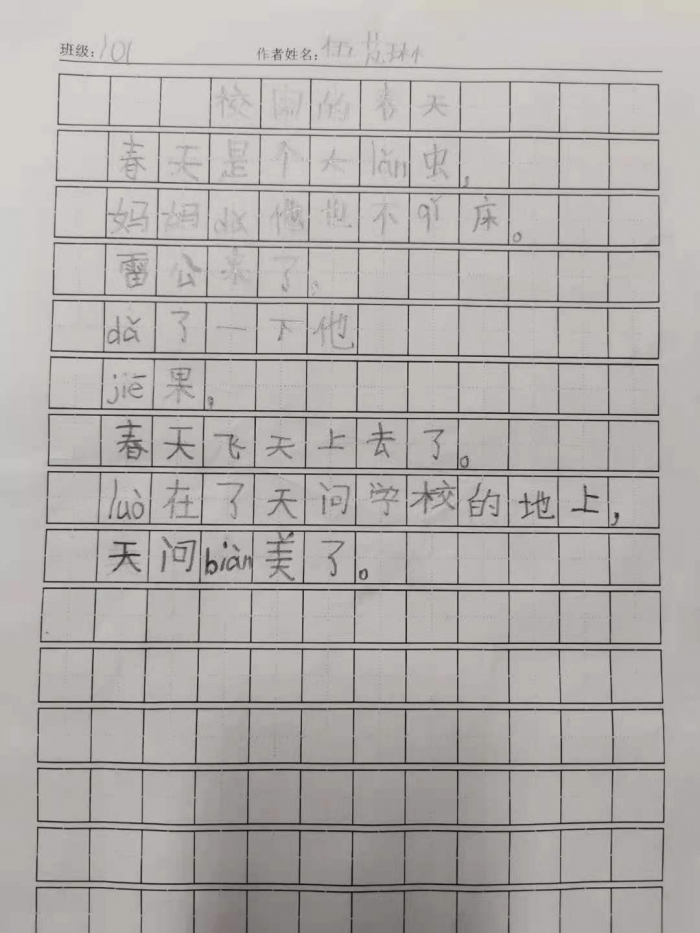 班级：101 作者姓名：伍芸琳
校园的春天
春天是个大lǎn虫，
妈妈dǎ他也不qǐ床。
雷公来了，
dǎ了一下他
jiē果，
春天飞天上去了。
luò在了天问学校的地上，
天问biàn美了。